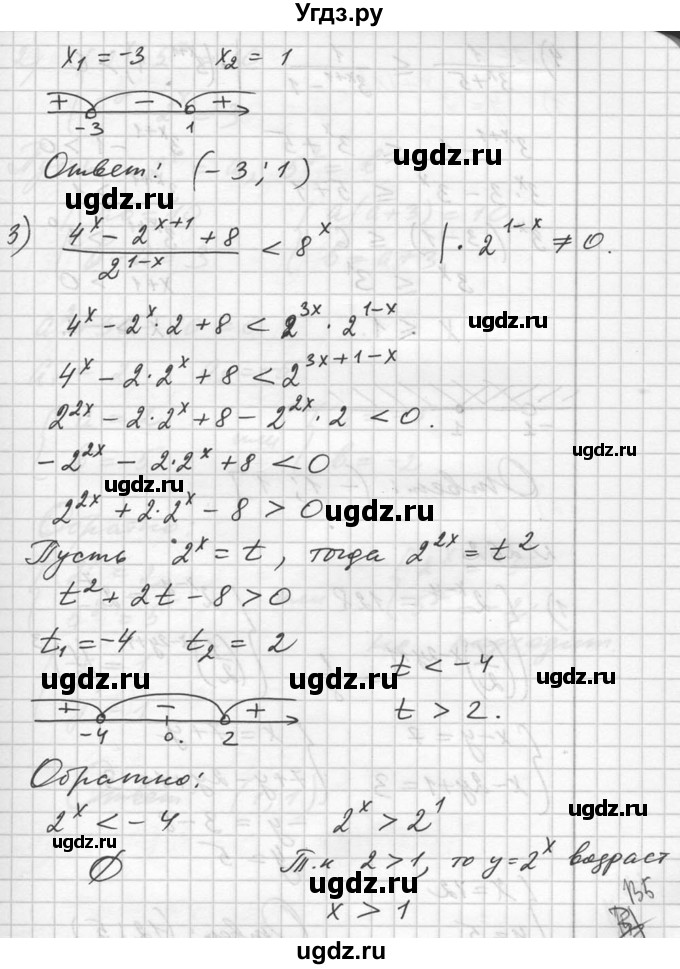 Угдз.ру
x₁ = -3  x₂ = 1
+ - +
-3 1
Ответ: (-3; 1)
ugdz.ru
ugdz.ru
3) (4^x - 2^(x+1) + 8) / 2^(1-x) < 8^x | · 2^(1-x) ≠ 0.
ugdz.ru
4^x - 2^x · 2 + 8 < 2^(3x) · 2^(1-x).
ugdz.ru
4^x - 2·2^x + 8 < 2^(3x+1-x)
2^(2x) - 2·2^x + 8 - 2^(2x)·2 < 0.
-2^(2x) - 2·2^x + 8 < 0
ugdz.ru
ugdz.ru
2^(2x) + 2·2^x - 8 > 0
ugdz.ru
Пусть 2^x = t, тогда 2^(2x) = t²
t² + 2t - 8 > 0
t₁ = -4  t₂ = 2
t < -4
ugdz.ru
ugdz.ru
ugdz.ru
+ - +
t > 2.
-4 0. 2
Обратно:
ugdz.ru
2^x < -4  2^x > 2^1
ugdz.ru
∅  Т.к 2 > 1, то y = 2^x возраст
ugdz.ru
x > 1
135
ugdz.ru